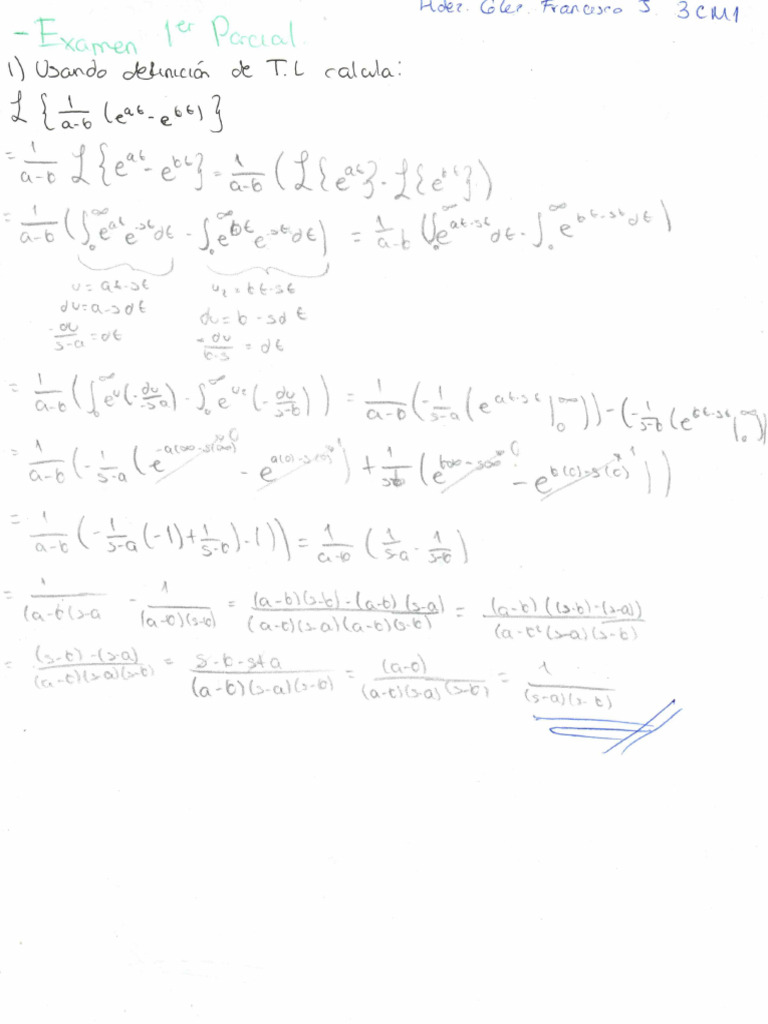 Hdez. Gler. Francisco J. 3CM1
- Examen 1er Parcial.
1) Usando definición de T.L calcula:
ℒ{1/(a-b) (e^at - e^bt)}
= 1/(a-b) ℒ{e^at - e^bt} = 1/(a-b) (ℒ{e^at} - ℒ{e^bt})
= 1/(a-b) (∫₀^∞ e^at e^-st dt - ∫₀^∞ e^bt e^-st dt) = 1/(a-b) (∫₀^∞ e^(at-st) dt - ∫₀^∞ e^(bt-st) dt)
u = at-st u₂ = bt-st
du = a-s dt du = b-s dt
-du/(s-a) = dt -du/(b-s) = dt
= 1/(a-b) (∫₀^∞ e^u (-du/(-s-a)) - ∫₀^∞ e^u₂ (-du/(s-b))) = 1/(a-b) (-1/(s-a) (e^(at-st) |₀^∞)) - (-1/(s-b) (e^(bt-st) |₀^∞)
= 1/(a-b) (-1/(s-a) (e^(-a(∞)-s(∞)) 0 - e^(a(0)-s(0)) 1) + 1/(s-b) (e^(b∞-s∞) 0 - e^(b(0)-s(0)) 1))
= 1/(a-b) (-1/(s-a) (-1) + 1/(s-b) (-1)) = 1/(a-b) (1/(s-a) - 1/(s-b))
= 1/((a-b)(s-a) - 1/((a-b)(s-b)) = ((a-b)(s-b)-(a-b)(s-a))/((a-b)(s-a)(a-b)(s-b)) = ((a-b)((s-b)-(s-a)))/((a-b)²(s-a)(s-b))
= ((s-b)-(s-a))/((a-b)(s-a)(s-b)) = (s-b-s+a)/((a-b)(s-a)(s-b)) = (a-b)/((a-b)(s-a)(s-b)) = 1/((s-a)(s-b))